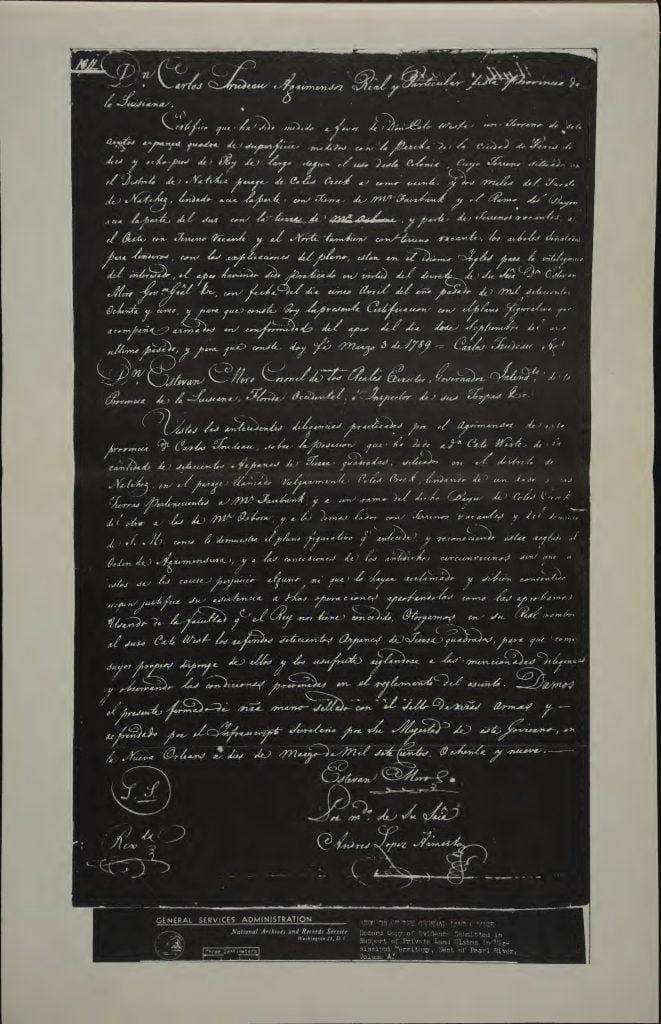 Dn Carlos Trudeau Agrimensor Real y Particular desta Provincia de
la Luisiana.
Certifico que ha sido medido a favor de Don Cato Waste un Terreno de sete
cientos arpanes quadra de superficie medidos con la Percha de la ciudad de Paris de
dies y ocho pies de Rey de largo segun el uso desta Colonia, cuyo Terreno situado en
el Distrito de Natches parage de Coles Creek a como veinte y dos Miles del Fuerte
de Natchez, lindado acia la parte con Tierra de Mr Fairbank y el Ramo del Bayou
acia la parte del sur con la tierra de Mr Osborne, y parte de Terrenos vacantes, a
el Oeste con Terreno Vacante y al Norte tambien con terreno vacante, los arboles
para linderos, con las explicaciones del plano, estan en el idioma Ingles para la inteligencia
del interesado, el apeo haviendo sido praticado en virtud del decreto de Su Sria Dn Estevan
Miro Gor Gräl &c, con fecha del dia cinco Avril del año pasado de mil setecientos
Ochenta y cinco, y para que conste doy la presente Certificacion con el plano figurativo que
acompaña armados en conformidad del apeo del dia dose Septiembre del año
ultimo pasado, y para que conste doy fé Marzo 3 de 1789 = Carlos Trudeau
Dn Estevan Miro Coronel de los Reales Exercitos, Governador Intendte de la
Provincia de la Luisiana, Florida Occidental, é Inspector de sus Tropas &c.
Vistas las antecedentes diligencias practicadas por el Agrimensor de esta
provincia Dn Carlos Trudeau, sobre la Posecion que ha dado a Dn Cato Waste de la
cantidad de setecientos Arpanes de Tierra quadradas, situados en el distrito de
Natchez, en el parage llamado Vulgarmente Coles Creek, lindando de un lado a las
Tierras Pertenecientes a Mr Fairbank y a un ramo del dicho Bayu de Coles Creek
del otro a las de Mr Osborn, y a los demas lados con Terrenos vacantes y del dominio
de S. M. como lo demuestra el plano figurativo q antecede y reconociendo estar areglado al
Orden de Agrimensura, y a las conceciones de los antedichos circunvecinos sin que a
estos se les cause perjuicio alguno, ni que lo hayan reclamado y si bien consentido
segun justifica su asistencia a dhas operaciones aprobandolas como las aprobamos
Usando de la facultad q el Rey nos tiene concedida Otorgamos en su Real nombre
al suxo Cato West los referidos setecientos Arpanes de Tierra quadradas, para que como
suyos propios disponga de ellos y los usufrute arglandose a las mencionadas diligencias
y observando las condiciones prevenidas en el reglamento del asunto. Damos
el presente firmado de nra mano sellado con el sello de nras Armas y —
refrendado por el Infrascripto Secretario por Su Magestad de este Govierno, en
la Nueva Orleans a dies de Marzo de Mil sete cientos Ochenta y nueve. —
Estevan Miro
L. S
Por mdo de Su Sria
Andres Lopez Armesto
GENERAL SERVICES ADMINISTRATION
National Archives and Records Service
Washington 25, D. C
Three Centimeters
RECORDS OF THE GENERAL LAND OFFICE
Record Copy of Evidence Submitted in
Support of Private Land Claims in Mis-
sissippi Territory, West of Pearl River,
Volume A